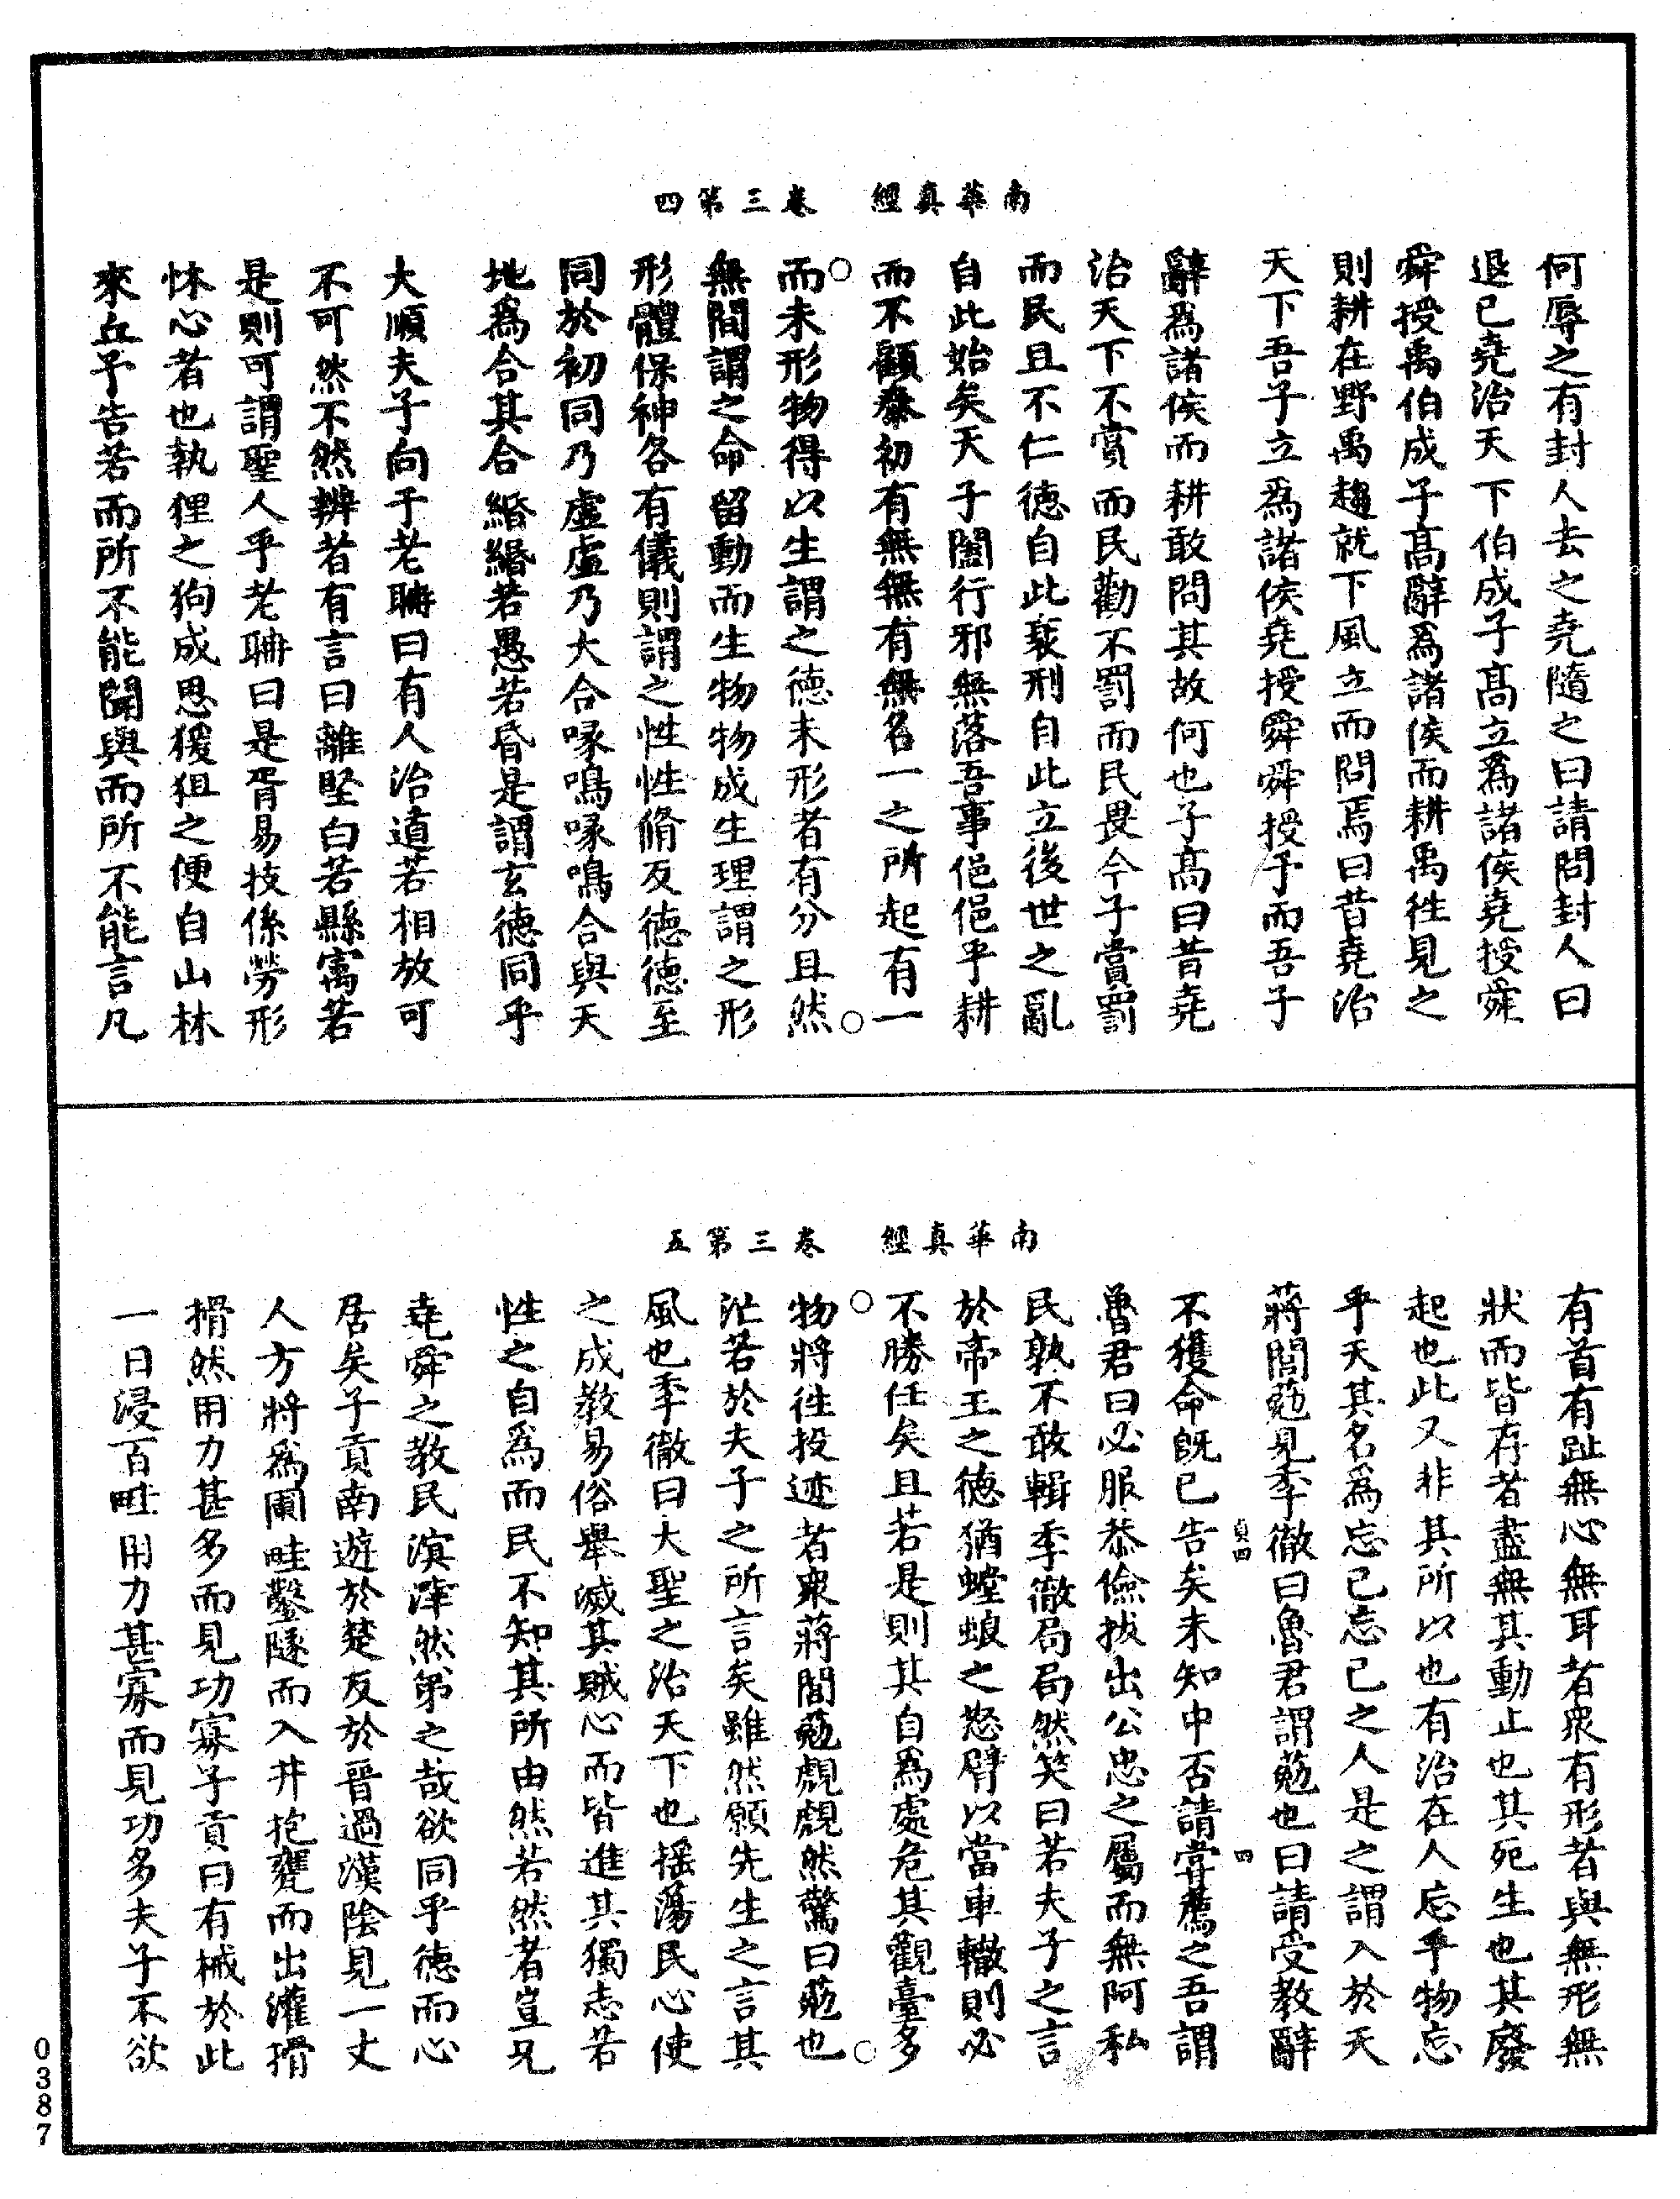 南華真經　卷三第四
何辱之有封人去之堯隨之曰請問封人曰
退已堯治天下伯成子髙立爲諸侯堯授舜
舜授禹伯成子髙辭爲諸侯而耕禹徃見之
則耕在野禹趨就下風立而問焉曰昔堯治
天下吾子立爲諸侯堯授舜舜授予而吾子
辭爲諸侯而耕敢問其故何也子髙曰昔堯
治天下不賞而民勸不罰而民畏今子賞罰
而民且不仁德自此衰刑自此立後世之亂
自此始矣夫子闔行邪無落吾事俋俋乎耕
而不顧泰初有無無有無名一之所起有一
而未形物得以生謂之德未形者有分且然
無間謂之命留動而生物物成生理謂之形
形體保神各有儀則謂之性性脩反德德至
同於初同乃虛虛乃大合喙鳴喙鳴合與天
地爲合其合緡緡若愚若昏是謂玄德同乎
大順夫子向于老聃曰有人治道若相放可
不可然不然辨者有言曰離堅白若縣㝢若
是則可謂聖人乎老聃曰是胥易技係勞形
怵心者也執狸之狗成思猨狙之便自山林
來丘予告若而所不能聞與而所不能言凡
南華真經　卷三第五
有首有趾無心無耳者衆有形者與無形無
狀而皆存者盡無其動止也其死生也其廢
起也此又非其所以也有治在人忘乎物忘
乎天其名爲忘己忘己之人是之謂入於天
蔣閭葂見季徹曰魯君謂葂也曰請受教辭
貞四　四
不獲命既已告矣未知中否請嘗薦之吾謂
魯君曰必服恭儉拔出公忠之屬而無阿私
民孰不敢輯季徹局局然笑曰若夫子之言
於帝王之德猶螳蜋之怒臂以當車轍則必
不勝任矣且若是則其自爲處危其觀臺多
物將徃投迹者衆蔣閭葂覤覤然驚曰葂也
汒若於夫子之所言矣雖然願先生之言其
風也季徹曰大聖之治天下也摇蕩民心使
之成教易俗舉滅其賊心而皆進其獨志若
性之自爲而民不知其所由然若然者豈兄
堯舜之教民溟涬然弟之哉欲同乎德而心
居矣子貢南遊於楚反於晉過漢陰見一丈
人方將爲圃畦鑿隧而入井抱甕而出灌搰
搰然用力甚多而見功寡子貢曰有械於此
一日浸百畦用力甚寡而見功多夫子不欲
0387